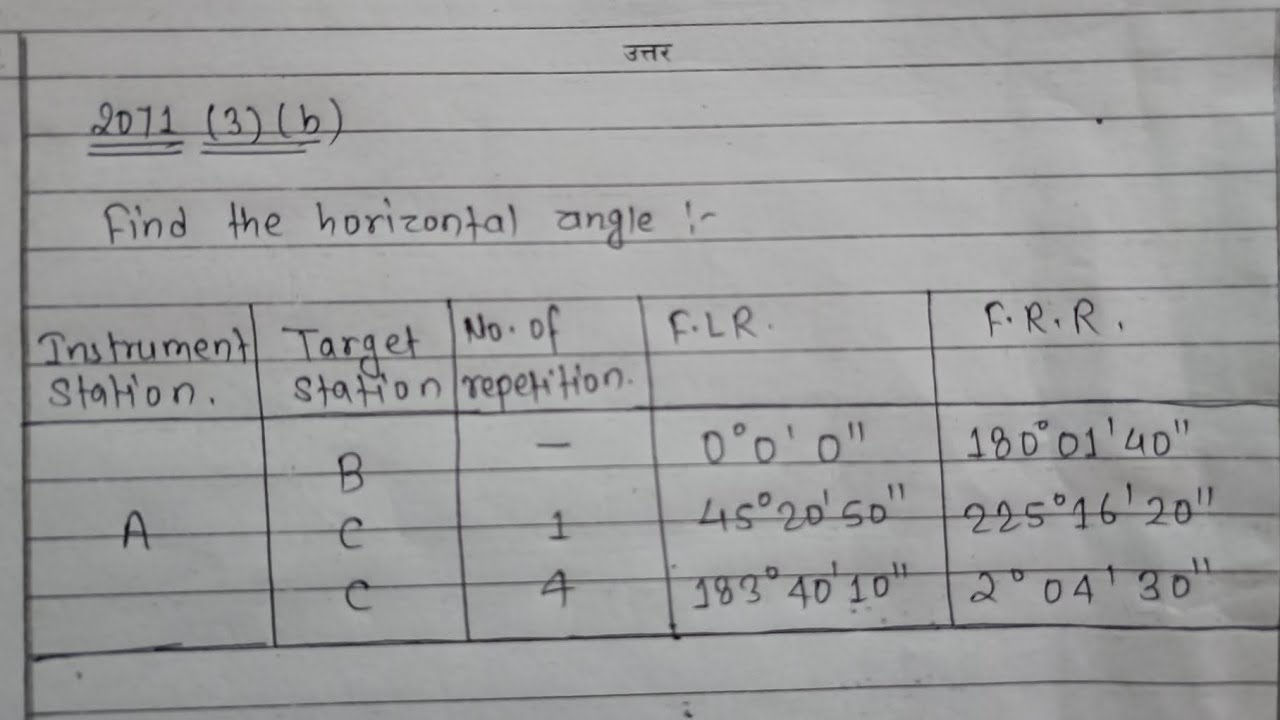 उत्तर
2071 (3) (b)
Find the horizontal angle :-
Instrument Station. Target Station No. of repetition. F.LR. F.R.R.
B — 0°0'0" 180°01'40"
A C 1 45°20'50" 225°16'20"
C 4 183°40'10" 2°04'30"